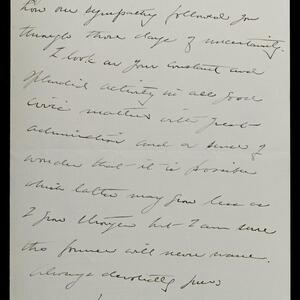 how our sympathy followed you
through those days of uncertainty.
I look on your constant and
splendid activity in all good
civic matters with great
admiration and a sense of
wonder that it is possible
which latter may grow less as
I grow stronger but I am sure
the former will never wane.
Always devotedly yours